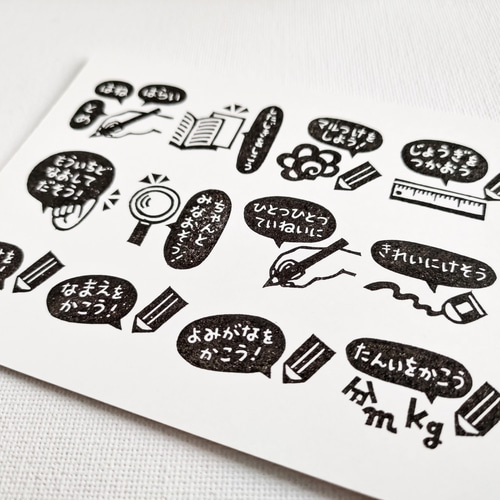 はね
はらい
とめ
したじきをしこう
マルつけを
しよう!
じょうぎを
つかおう
もういちど
なおして
だそう!
ちゃんと
みなおそう!
ひとつひとつ
ていねいに
きれいにけそう
なまえを
かこう!
よみがなを
かこう!
たんいをかこう
m
kg